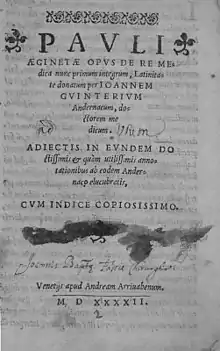 PAVLI
ÆGINETÆ OPVS DE RE ME-
dica nunc primum integrum, Latinita-
te donatum per IOANNEM
GVINTERIVM
Andernacum, do-
ctorem me
dicum.
ADIECTIS IN EVNDEM DO
ctissimis & quàm utilissimis anno-
tationibus ab eodem Ander-
naco elucubratis,
CVM INDICE COPIOSISSIMO.
Joannis Bapte
Venetijs apud Andream Arriuabenum.
M D XXXXII